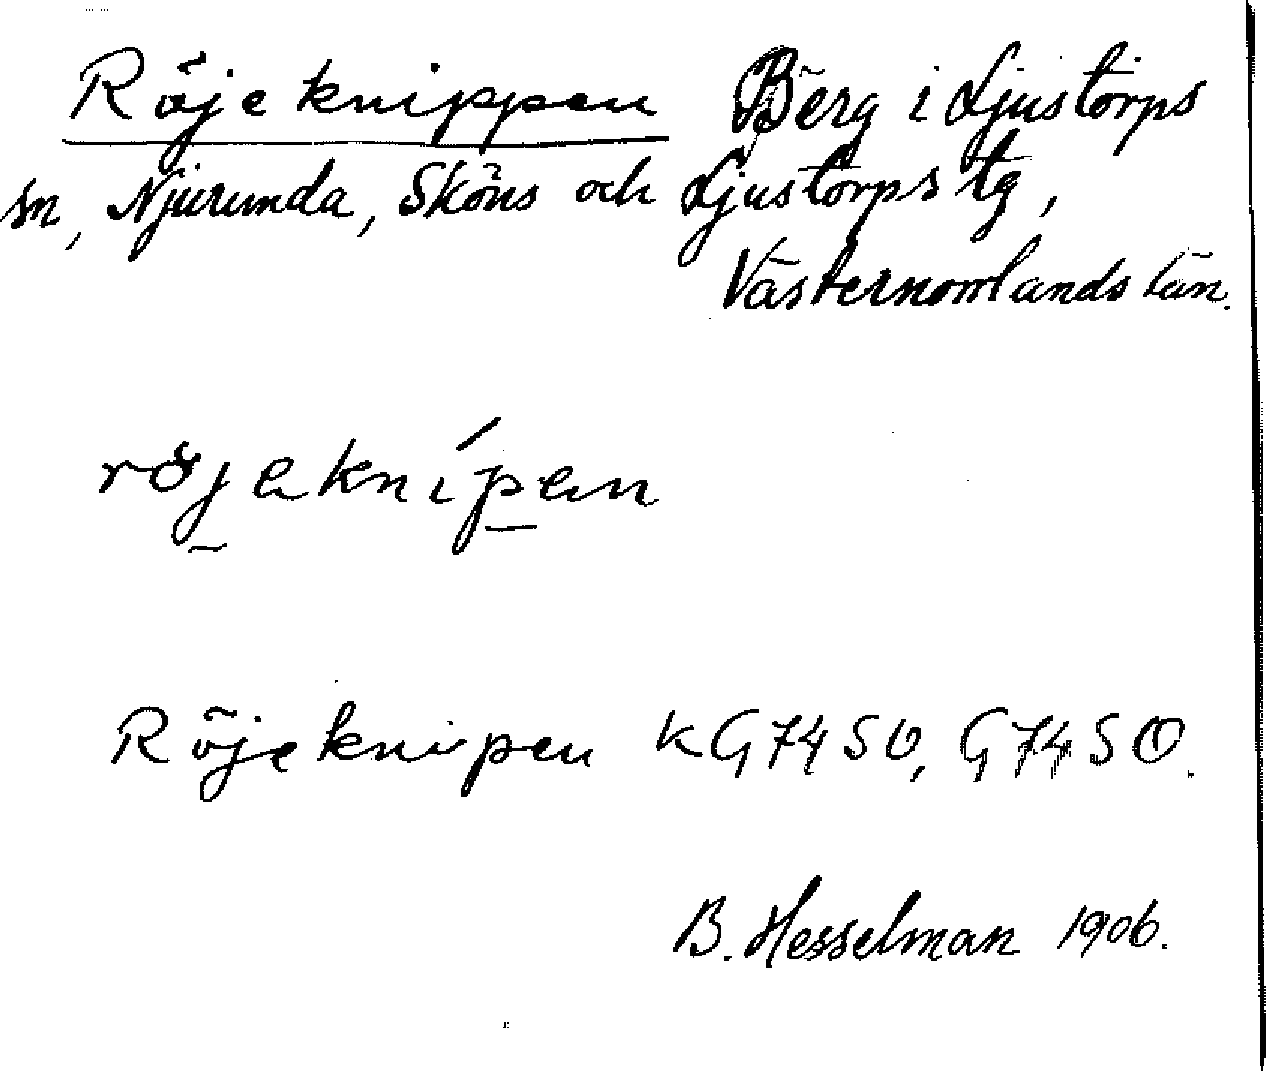 Röjeknippen Berg i Ljustorps
sn, Njurunda, Sköns och Ljustorps tg,
Västernorrlands län.
röjeknípen
Röjeknipen KG74SV, G74SO.
B. Hesselman 1906.